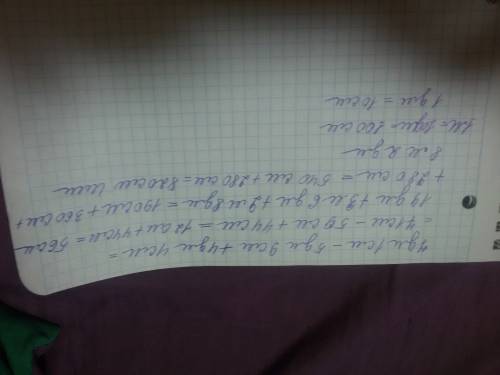 7 дм 1 см − 5 дм 9 см + 4 дм 4 см =
= 71 см − 59 см + 44 см = 12 см + 44 см = 56 см
19 дм + 3 м 6 дм + 2 м 8 дм = 190 см + 360 см +
+ 280 см = 540 см + 280 см = 820 см или
8 м 2 дм
1 м = 10 дм = 100 см
1 дм = 10 см